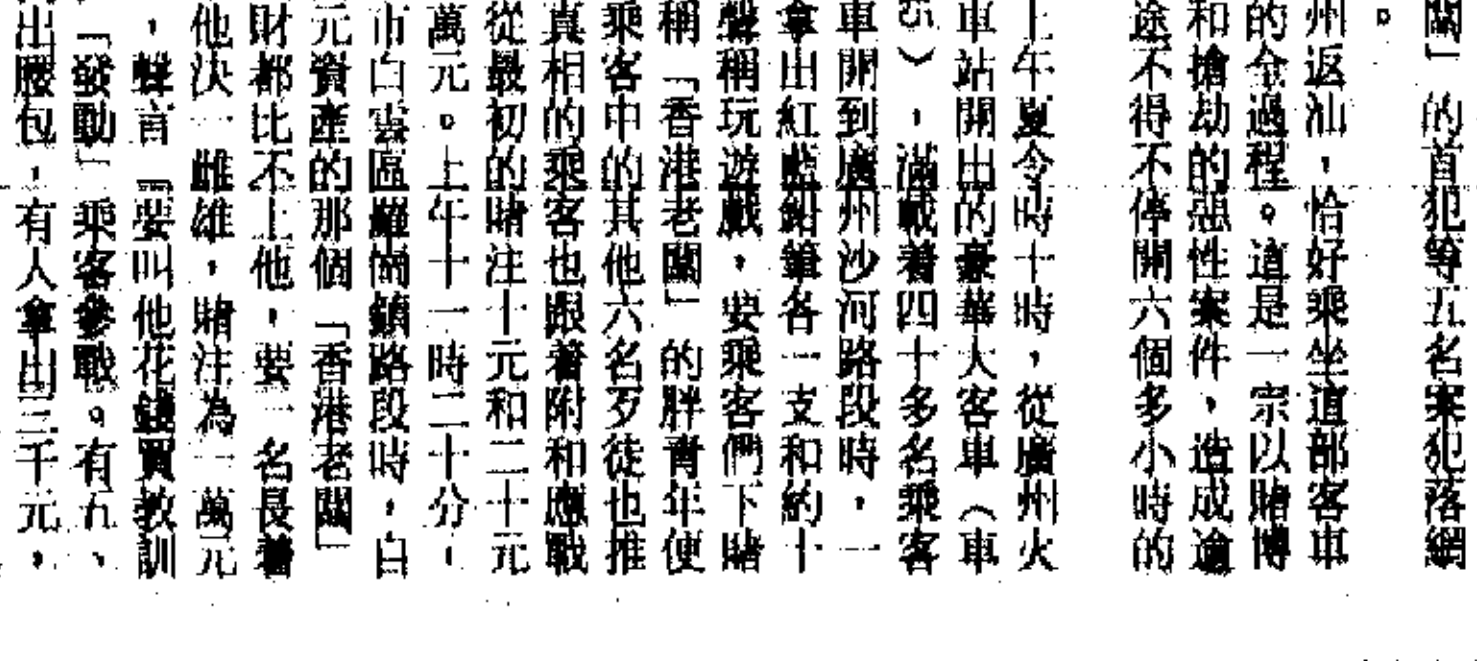 闆」的首犯等五名案犯落網
。
州返汕，恰好乘坐這部客車
的全過程。這是一宗以賭博
和搶劫的惡性案件，造成逾
途不得不停開六個多小時的
上午夏令時十時，從廣州火
車站開出的豪華大客車（車
），滿載着四十多名乘客
車開到廣州沙河路段時，一
拿出紅藍鉛筆各一支和約十
聲稱玩遊戲，要乘客們下賭
稱「香港老闆」的胖青年便
乘客中的其他六名歹徒也推
真相的乘客也跟着附和應戰
從最初的賭注十元和二十元
萬元。上午十一時二十分，
市白雲區羅崗鎮路段時，自
元資產的那個「香港老闆」
財都比不上他，要一名長着
他決一雌雄，賭注為一萬元
，聲言『要叫他花錢買教訓
「發動」乘客參戰。有五、
出腰包，有人拿出三千元，